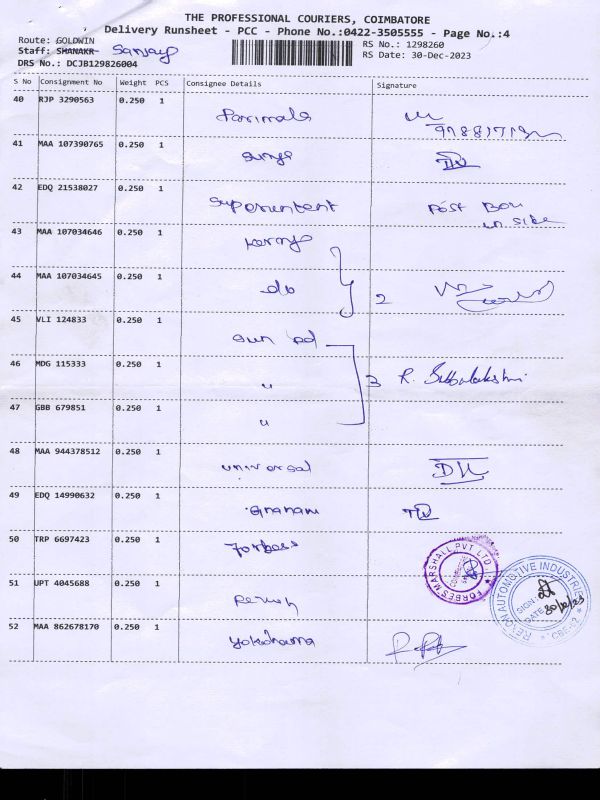 THE PROFESSIONAL COURIERS, COIMBATORE
Delivery Runsheet - PCC - Phone No.:0422-3505555 - Page No.:4
Route: GOLDWIN
RS No.: 1298260
Staff: SHANAKR Sanjay
RS Date: 30-Dec-2023
DRS No.: DCJB129826004
S No Consignment No Weight PCS Consignee Details Signature
40 RJP 3290563 0.250 1 Parimala
41 MAA 107390765 0.250 1
42 EDQ 21538027 0.250 1 Post Box
in side
43 MAA 107034646 0.250 1
44 MAA 107034645 0.250 1 do 2
45 VLI 124833 0.250 1 Sun ed
46 MDG 115333 0.250 1 " 3 R. Subbulakshmi
47 GBB 679851 0.250 1 "
48 MAA 944378512 0.250 1 universal
49 EDQ 14990632 0.250 1
50 TRP 6697423 0.250 1 Forbess
FORBES MARSHALL PVT LTD
51 UPT 4045688 0.250 1
AUTOMOTIVE INDUSTRIE
SIGN:
DATE:
CBE
52 MAA 862678170 0.250 1 yokohama